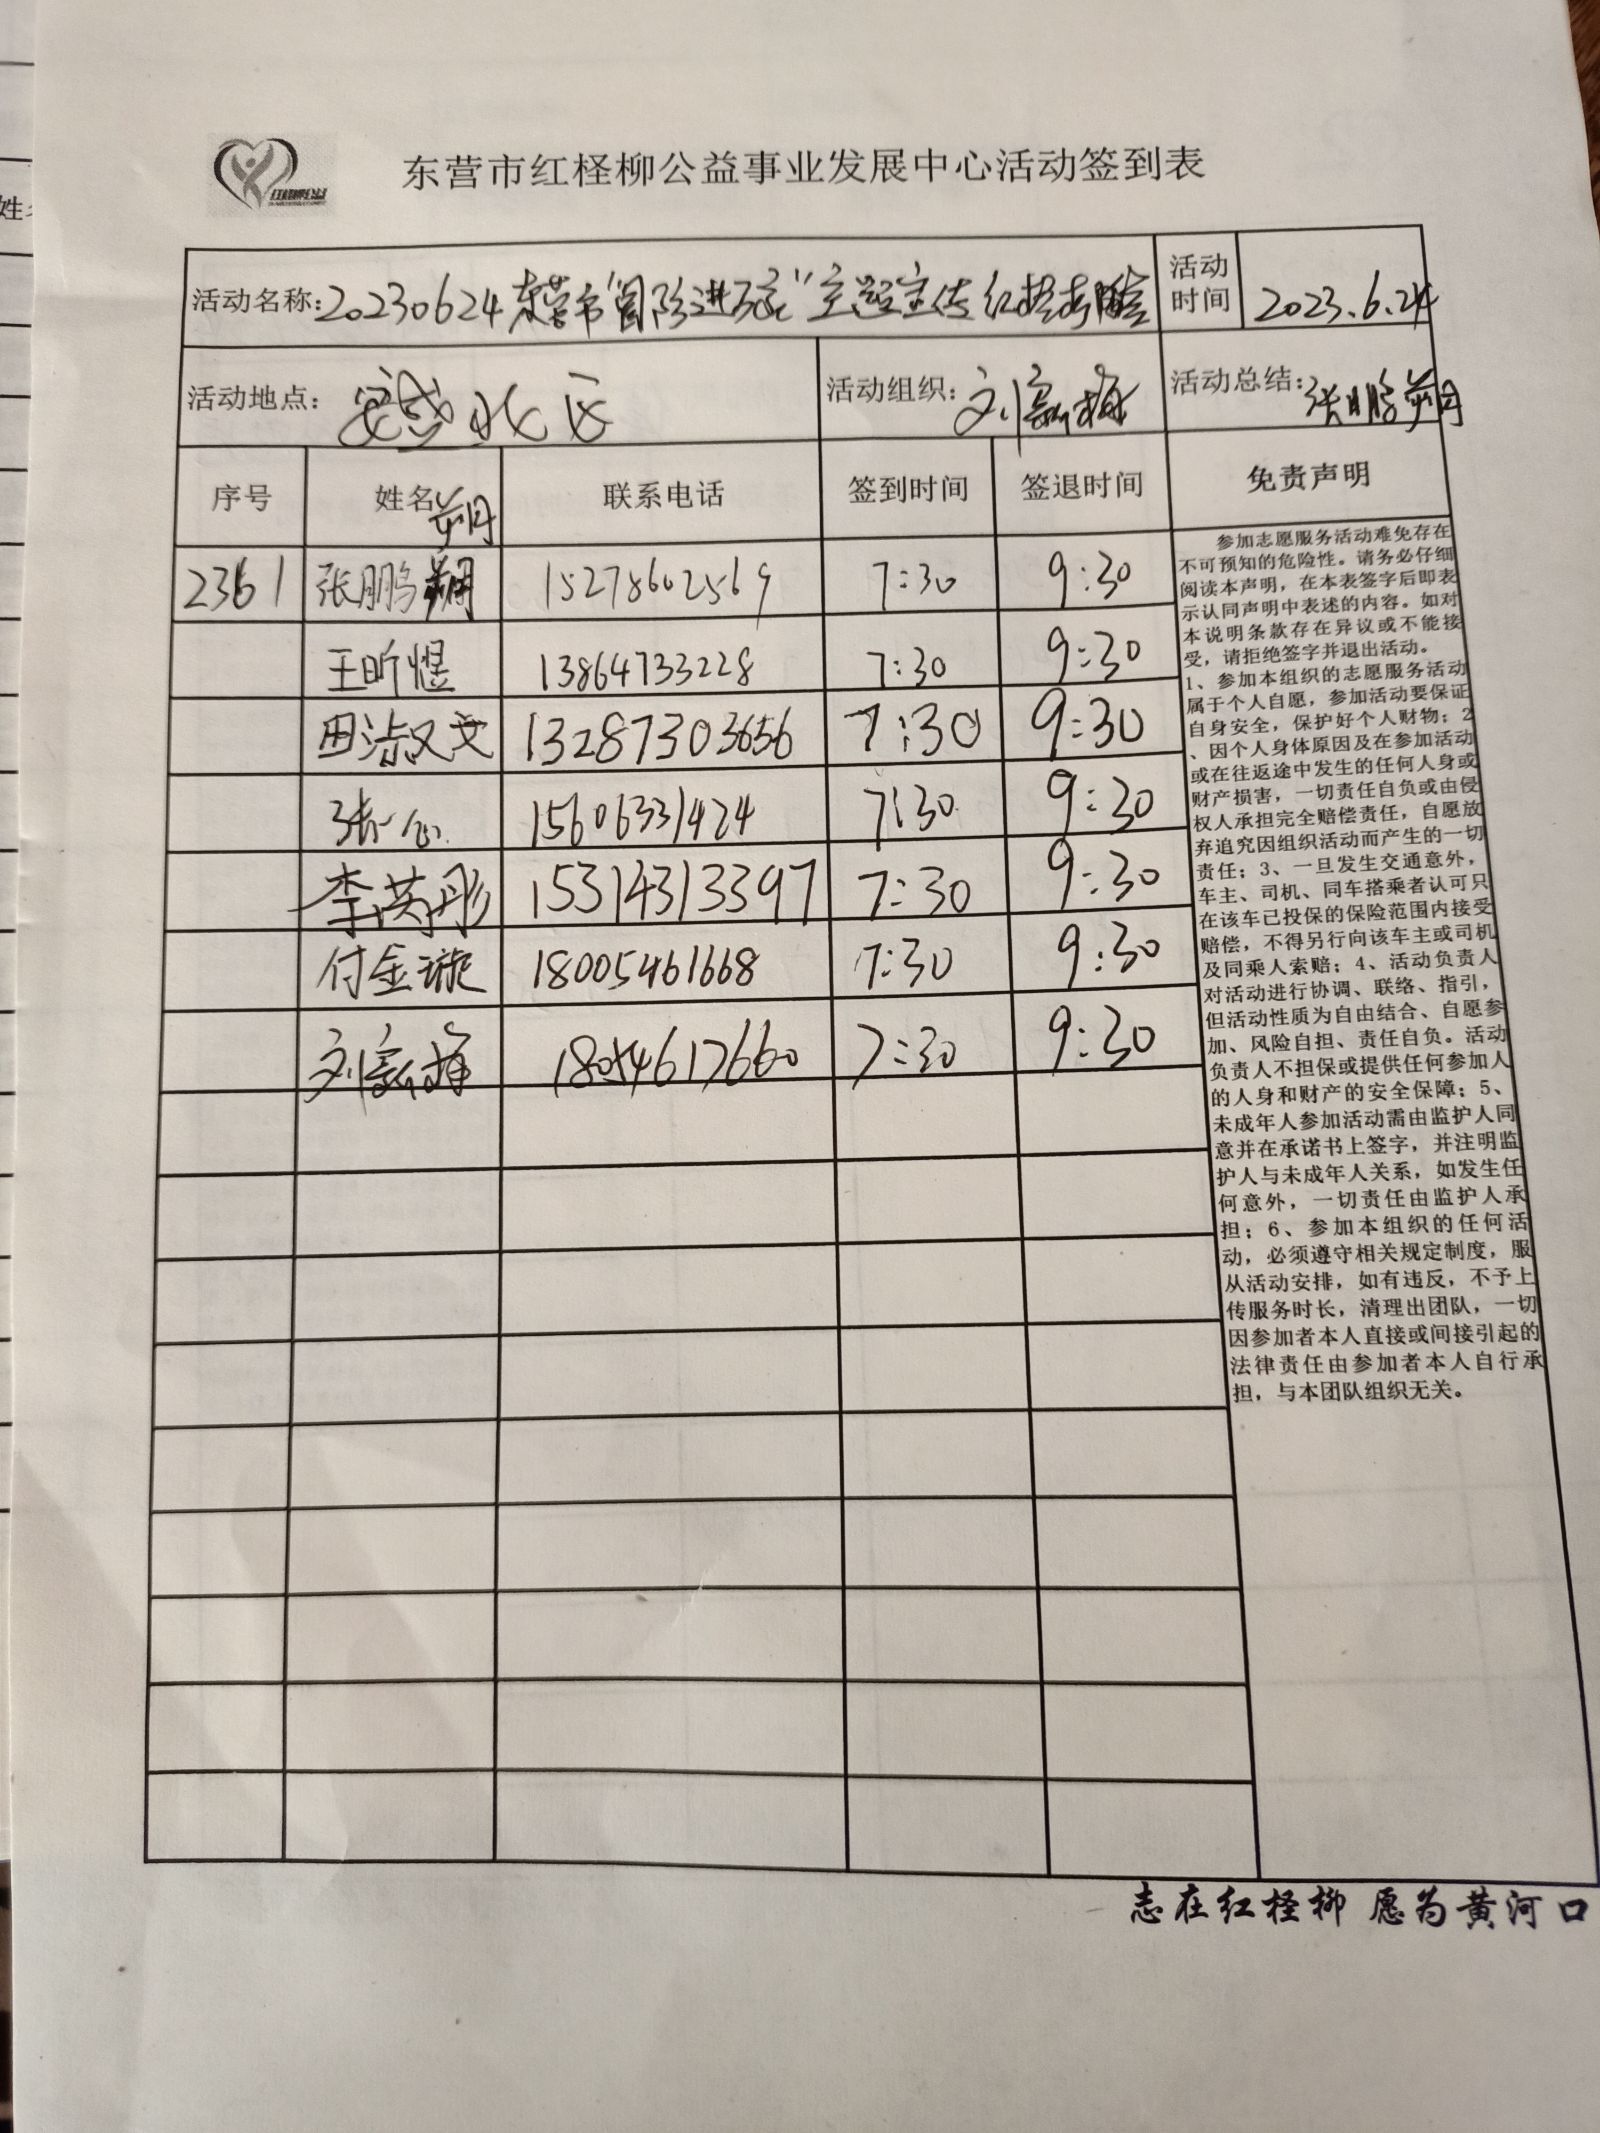 东营市红柽柳公益事业发展中心活动签到表
活动名称：20230624东营市 主题宣传红
活动时间 2023.6.24
活动地点： 安盛北区
活动组织：刘 梅
活动总结：张鹏翔
序号 姓名 联系电话 签到时间 签退时间 免责声明
2361 张鹏 15278602569 7:30 9:30
王昕煜 13864733228 7:30 9:30
田淑文 13287303656 7:30 9:30
张一心 15606331424 7:30 9:30
李英彤 15314313397 7:30 9:30
付金璇 18005461668 7:30 9:30
刘 梅 18054617660 7:30 9:30
参加志愿服务活动难免存在
不可预知的危险性。请务必仔细
阅读本声明，在本表签字后即表
示认同声明中表述的内容。如对
本说明条款存在异议或不能接
受，请拒绝签字并退出活动。
1、参加本组织的志愿服务活动
属于个人自愿，参加活动要保证
自身安全，保护好个人财物；2
、因个人身体原因及在参加活动
或在往返途中发生的任何人身或
财产损害，一切责任自负或由侵
权人承担完全赔偿责任，自愿放
弃追究因组织活动而产生的一切
责任；3、一旦发生交通意外，
车主、司机、同车搭乘者认可只
在该车已投保的保险范围内接受
赔偿，不得另行向该车主或司机
及同乘人索赔；4、活动负责人
对活动进行协调、联络、指引，
但活动性质为自由结合、自愿参
加、风险自担、责任自负。活动
负责人不担保或提供任何参加人
的人身和财产的安全保障；5、
未成年人参加活动需由监护人同
意并在承诺书上签字，并注明监
护人与未成年人关系，如发生任
何意外，一切责任由监护人承
担；6、参加本组织的任何活
动，必须遵守相关规定制度，服
从活动安排，如有违反，不予上
传服务时长，清理出团队，一切
因参加者本人直接或间接引起的
法律责任由参加者本人自行承
担，与本团队组织无关。
志在红柽柳 愿为黄河口